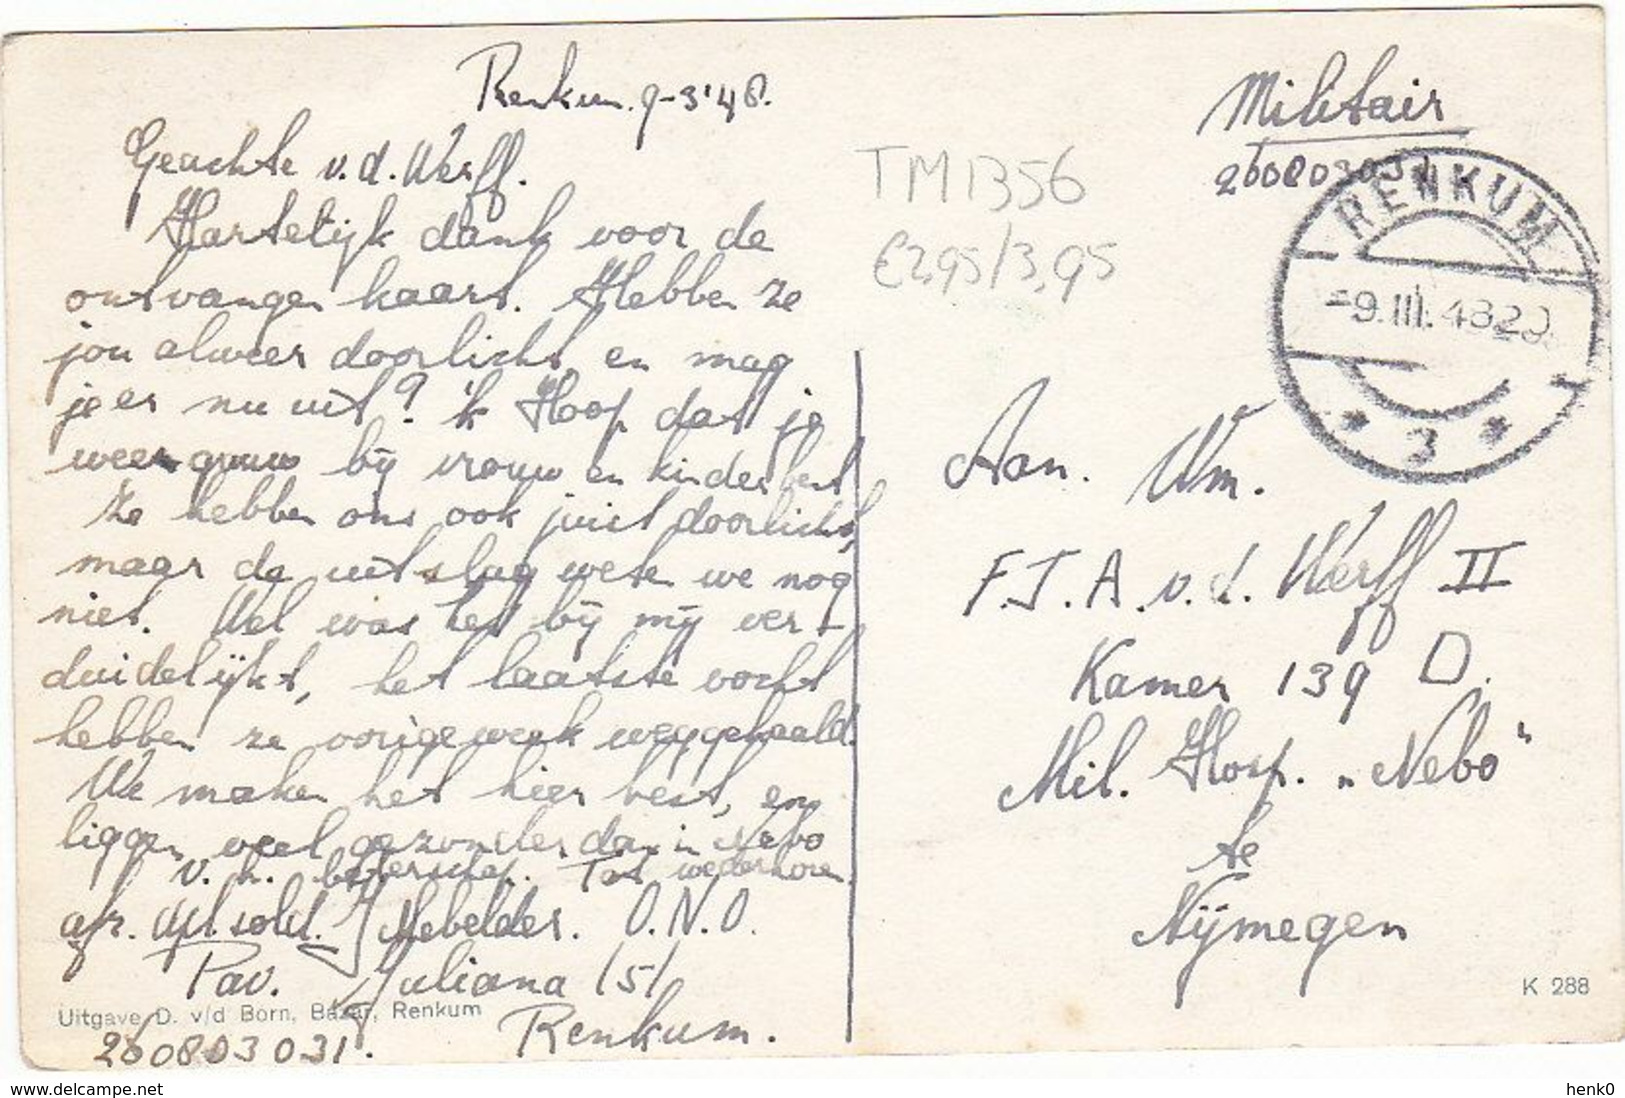 Renkum. 9-3'48.
Geachte v.d. Werff.
Hartelijk dank voor de
ontvangen kaart. Hebben ze
jou alweer doorlicht en mag
je er nu uit? 'k Hoop dat je
weer gauw bij vrouw en kinder bent
Ze hebben ons ook juist doorlicht,
maar de uitslag weten we nog
niet. Wel was het bij mij ver-
duidelijkt, het laatste vocht
hebben ze vorige week weggehaald.
We maken het hier best, en
liggen veel gezonder dan in Nebo
v. h. beterschap. Tot wederhoren
afz. dpl sold. J Hebelder. O.N.O.
Pav. Juliana (5)
Renkum.
260803031.
Uitgave D. v/d Born, Bazar, Renkum
Militair
260803031
TM1356
€2,95/3,95
RENKUM
-9.III.4820
3
Aan. Wm.
F.J.A. v.d. Werff II
Kamer 139 D.
Mil. Hosp. „Nebo"
te
Nijmegen
K 288
www.delcampe.net
henk0